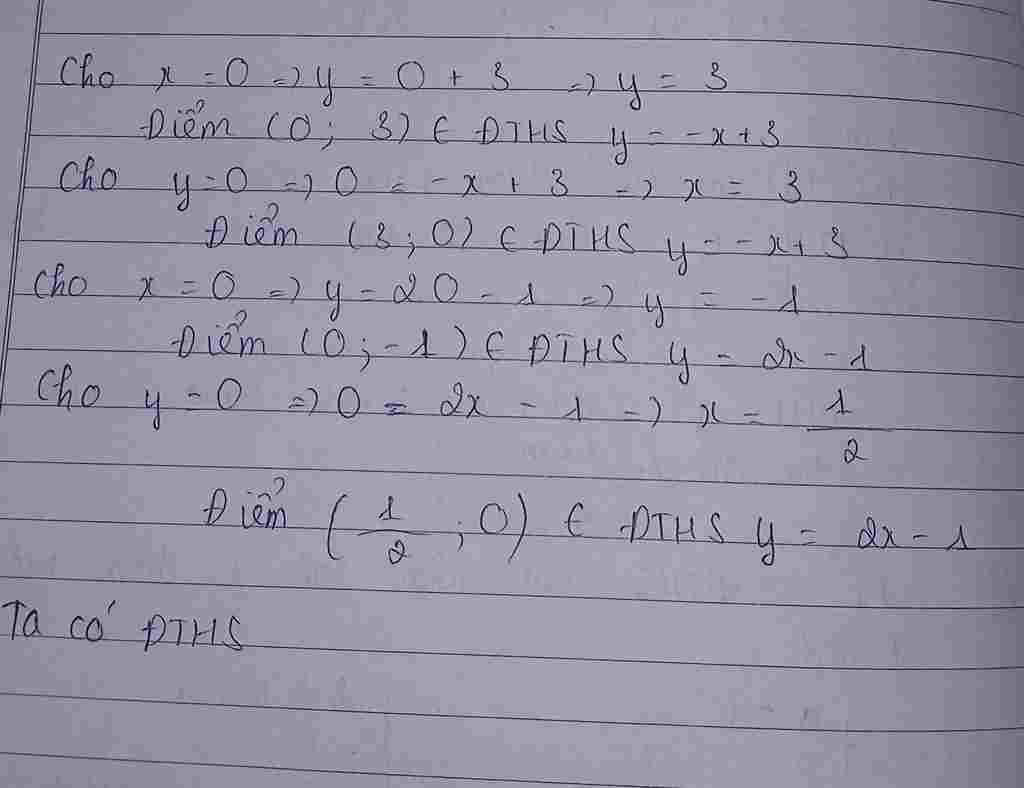 Cho x = 0 => y = 0 + 3 => y = 3
Điểm (0; 3) ∈ ĐTHS y = -x + 3
Cho y = 0 => 0 = -x + 3 => x = 3
Điểm (3; 0) ∈ ĐTHS y = -x + 3
Cho x = 0 => y = 20 - 1 => y = -1
Điểm (0; -1) ∈ ĐTHS y = 2x - 1
Cho y = 0 => 0 = 2x - 1 => x = 1/2
Điểm (1/2; 0) ∈ ĐTHS y = 2x - 1
Ta có ĐTHS